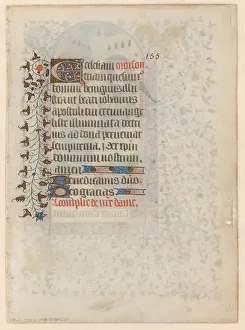 155
Ecclesiam oroison
tuam quesumus
domine benignus illu
stra ut beati iohannis
apostoli tui et euuange
liste illuminata doctri
nis ad dona perueniat
sempiterna. per xpm
dominum nostrum.
amen
Benedicamus dño
Deo gracias
Complie de nre dame.